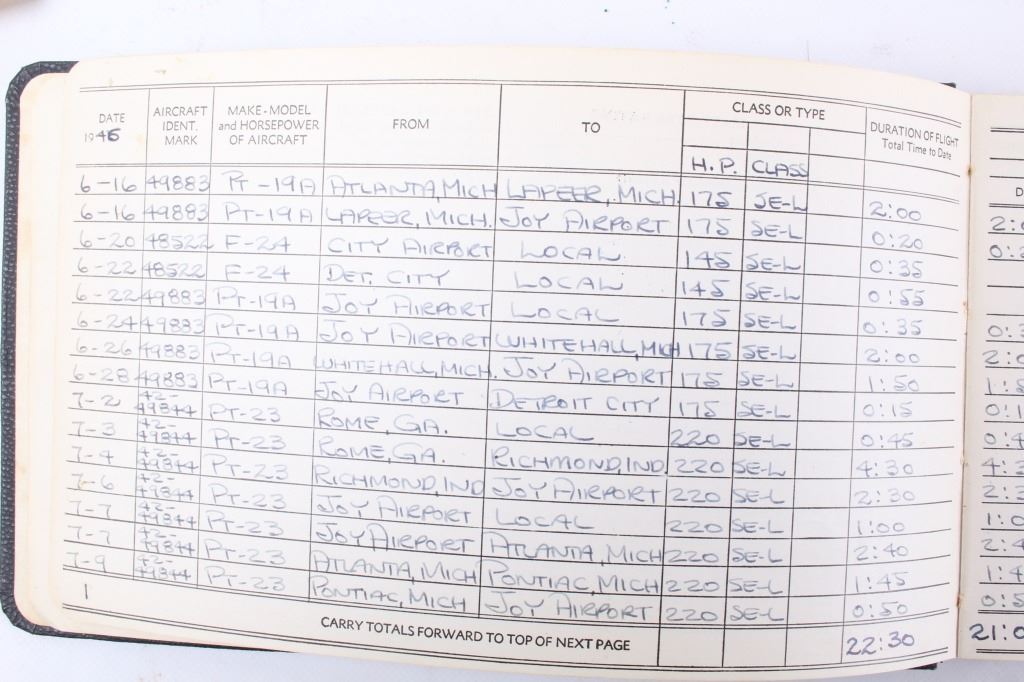 DATE 1946 AIRCRAFT IDENT. MARK MAKE-MODEL and HORSEPOWER OF AIRCRAFT FROM TO CLASS OR TYPE DURATION OF FLIGHT Total Time to Date
H.P. CLASS
6-16 49883 PT-19A ATLANTA, MICH LAPEER, MICH. 175 SE-L 2:00
6-16 49883 PT-19A LAPEER, MICH. JOY AIRPORT 175 SE-L 0:20
6-20 48522 F-24 CITY AIRPORT LOCAL 145 SE-L 0:35
6-22 48522 F-24 DET. CITY LOCAL 145 SE-L 0:55
6-22 49883 PT-19A JOY AIRPORT LOCAL 175 SE-L 0:35
6-24 49883 PT-19A JOY AIRPORT WHITEHALL, MICH 175 SE-L 2:00
6-26 49883 PT-19A WHITEHALL, MICH. JOY AIRPORT 175 SE-L 1:50
6-28 49883 PT-19A JOY AIRPORT DETROIT CITY 175 SE-L 0:15
7-2 42-49844 PT-23 ROME, GA. LOCAL 220 SE-L 0:45
7-3 42-49844 PT-23 ROME, GA. RICHMOND, IND. 220 SE-L 4:30
7-4 42-49844 PT-23 RICHMOND, IND JOY AIRPORT 220 SE-L 2:30
7-6 42-49844 PT-23 JOY AIRPORT LOCAL 220 SE-L 1:00
7-7 42-49844 PT-23 JOY AIRPORT ATLANTA, MICH 220 SE-L 2:40
7-7 42-49844 PT-23 ATLANTA, MICH PONTIAC, MICH 220 SE-L 1:45
7-9 42-49844 PT-23 PONTIAC, MICH JOY AIRPORT 220 SE-L 0:50
1 CARRY TOTALS FORWARD TO TOP OF NEXT PAGE 22:30